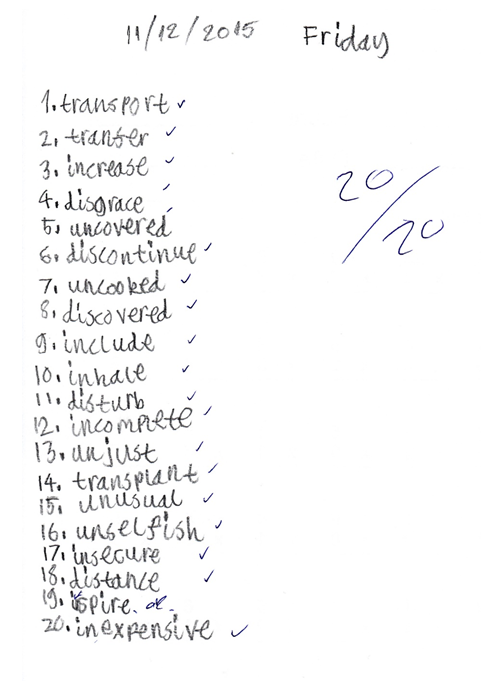 11/12/2015 Friday
1. transport ✓
2. transfer ✓
3. increase ✓
4. disgrace ✓
5. uncovered ✓
6. discontinue ✓
7. uncooked ✓
8. discovered ✓
9. include ✓
10. inhale ✓
11. disturb ✓
12. incomplete ✓
13. unjust ✓
14. transplant ✓
15. unusual ✓
16. unselfish ✓
17. insecure ✓
18. distance ✓
19. ispire.
20. inexpensive ✓
20/20